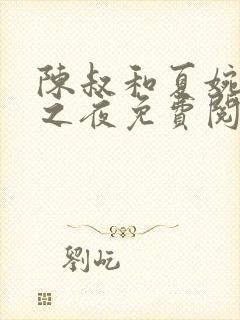 陳叔和夏婉
之夜免費閱
劉屹